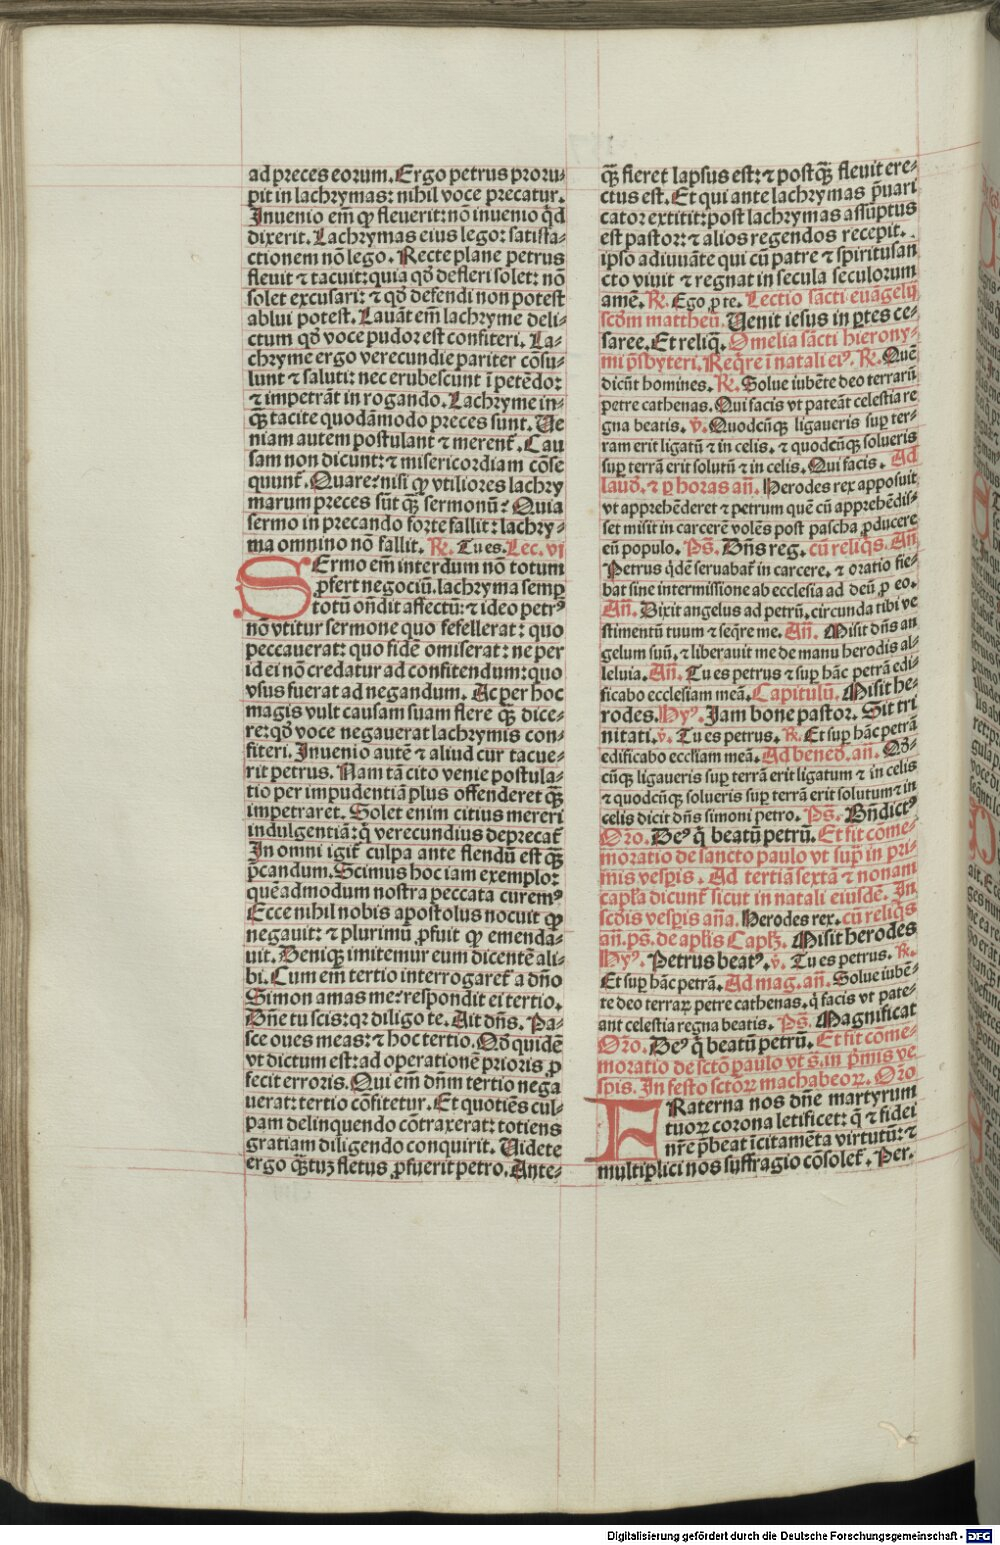 ad preces eorum. Ergo petrus proru-
pit in lachrymas: nihil voce precatur.
Inuenio em̄ ꝙ fleuerit: nō inuenio qͥd
dixerit. Lachrymas eius lego: satisfa-
ctionem nō lego. Recte plane petrus
fleuit ⁊ tacuit: quia qd̄ defleri solet: nō
solet excusari: ⁊ qd̄ defendi non potest
ablui potest. Lauāt em̄ lachryme deli-
ctum qd̄ voce pudor est confiteri. La-
chryme ergo verecundie pariter cōsu-
lunt ⁊ saluti: nec erubescunt ī petēdo:
⁊ impetrāt in rogando. Lachryme in-
qͣꝫ tacite quodāmodo preces sunt. Ue
niam autem postulant ⁊ merent᷑. Cau
sam non dicunt: ⁊ misericordiam cōse
quunt᷑. Quare? nisi ꝙ vtiliores lachry
marum preces sūt qͣꝫ sermonū? Quia
sermo in precando forte fallit: lachry-
ma omnino nō fallit. R̄. Tu es. Lec. vi
SErmo em̄ interdum nō totum
ꝓfert negociū. lachryma semꝑ
totū on̄dit affectū: ⁊ ideo petrꝰ
nō vtitur sermone quo fefellerat: quo
peccauerat: quo fidē omiserat: ne per
id ei nō credatur ad confitendum: quo
vsus fuerat ad negandum. Ac per hoc
magis vult causam suam flere qͣꝫ dice-
re: qd̄ voce negauerat lachrymis con-
fiteri. Inuenio autē ⁊ aliud cur tacue-
rit petrus. Nam tā cito venie postula-
tio per impudentiā plus offenderet qͣꝫ
impetraret. Solet enim citius mereri
indulgentiā: qͥ verecundius deprecat᷑
In omni igit᷑ culpa ante flendū est qͣꝫ
p̄candum. Scimus hoc iam exemplo:
quēadmodum nostra peccata curemꝰ
Ecce nihil nobis apostolus nocuit ꝙ
negauit: ⁊ plurimū ꝓfuit ꝙ emenda-
uit. Deniqꝫ imitemur eum dicentē ali-
bi. Cum em̄ tertio interrogaret᷑ a dn̄o
Simon amas me? respondit ei tertio.
Dn̄e tu scis: qꝛ diligo te. Ait dn̄s. Pa-
sce oues meas: ⁊ hoc tertio. Qd̄ quidē
vt dictum est: ad operationē prioris ꝓ
fecit erroris. Qui em̄ dn̄m tertio nega
uerat: tertio cōfitetur. Et quotiēs cul-
pam delinquendo cōtraxerat: totiens
gratiam diligendo conquirit. Uidete
ergo qͣꝫtuꝫ fletus ꝓfuerit petro. Ante-
qͣꝫ fleret lapsus est: ⁊ postqͣꝫ fleuit ere-
ctus est. Et qui ante lachrymas p̄uari
cator extitit: post lachrymas assūptus
est pastor: ⁊ alios regendos recepit.
ipso adiuuāte qui cū patre ⁊ spiritusan
cto viuit ⁊ regnat in secula seculorum
amē. R̄. Ego ꝓ te. Lectio sācti euāgelij
scd̄m mattheū. Uenit iesus in ꝑtes ce-
saree. Et reliqͣ. Omelia sācti hierony-
mi p̄sbyteri. Reqͥre ī natali eiꝰ. R̄. Quē
dicūt homines. R̄. Solue iubēte deo terrarū
petre cathenas. Qui facis vt pateāt celestia re
gna beatis. v̄. Quodcūqꝫ ligaueris suꝑ ter-
ram erit ligatū ⁊ in celis. ⁊ quodcūqꝫ solueris
suꝑ terrā erit solutū ⁊ in celis. Qui facis. Ad
laud̄. ⁊ ꝑ horas an̄. Herodes rex apposuit
vt apprehēderet ⁊ petrum quē cū apprehēdis-
set misit in carcerē volēs post pascha ꝓducere
eū populo. Ps̄. Dn̄s reg. cū reliqͥs. An̄
Petrus qͥdē seruabat᷑ in carcere. ⁊ oratio fie-
bat sine intermissione ab ecclesia ad deū ꝓ eo.
An̄. Dixit angelus ad petrū. circunda tibi ve
stimentū tuum ⁊ seqͥre me. An̄. Misit dn̄s an
gelum suū. ⁊ liberauit me de manu herodis al-
leluia. An̄. Tu es petrus ⁊ suꝑ hāc petrā edi-
ficabo ecclesiam meā. Capitulū. Misit he-
rodes. Hyꝰ. Iam bone pastor. Sit tri
nitati. v̄. Tu es petrus. R̄. Et suꝑ hāc petrā
edificabo eccl̄iam meā. Ad bened̄. an̄. Qd̄-
cūqꝫ ligaueris suꝑ terrā erit ligatum ⁊ in celis
⁊ quodcūqꝫ solueris suꝑ terrā erit solutum ⁊ in
celis dicit dn̄s simoni petro. Ps̄. Bn̄dictꝰ
Or̄o. Deꝰ qͥ beatū petrū. Et fit cōme-
moratio de sancto paulo vt supͣ in pri-
mis vesꝑis. Ad tertiā sextā ⁊ nonam
capl̄a dicunt᷑ sicut in natali eiusdē. In
scd̄is vesꝑis an̄a. Herodes rex. cū reliqͥs
an̄. ps̄. de apl̄is Capl̄ꝫ. Misit herodes
Hyꝰ. Petrus beatꝰ. v̄. Tu es petrus. R̄.
Et suꝑ hāc petrā. Ad mag. an̄. Solue iubē-
te deo terraꝝ petre cathenas. qͥ facis vt pate-
ant celestia regna beatis. Ps̄. Magnificat
Or̄o. Deꝰ qͥ beatū petrū. Et fit cōme-
moratio de sctō paulo vt s̄. in pͥmis ve
spis. In festo sctōꝝ machabeoꝝ. Or̄o
FRaterna nos dn̄e martyrum
tuoꝝ corona letificet: qͤ ⁊ fidei
nr̄e p̄beat īcitamēta virtutū: ⁊
multiplici nos suffragio cōsolet᷑. Per.
Digitalisierung gefördert durch die Deutsche Forschungsgemeinschaft - DFG